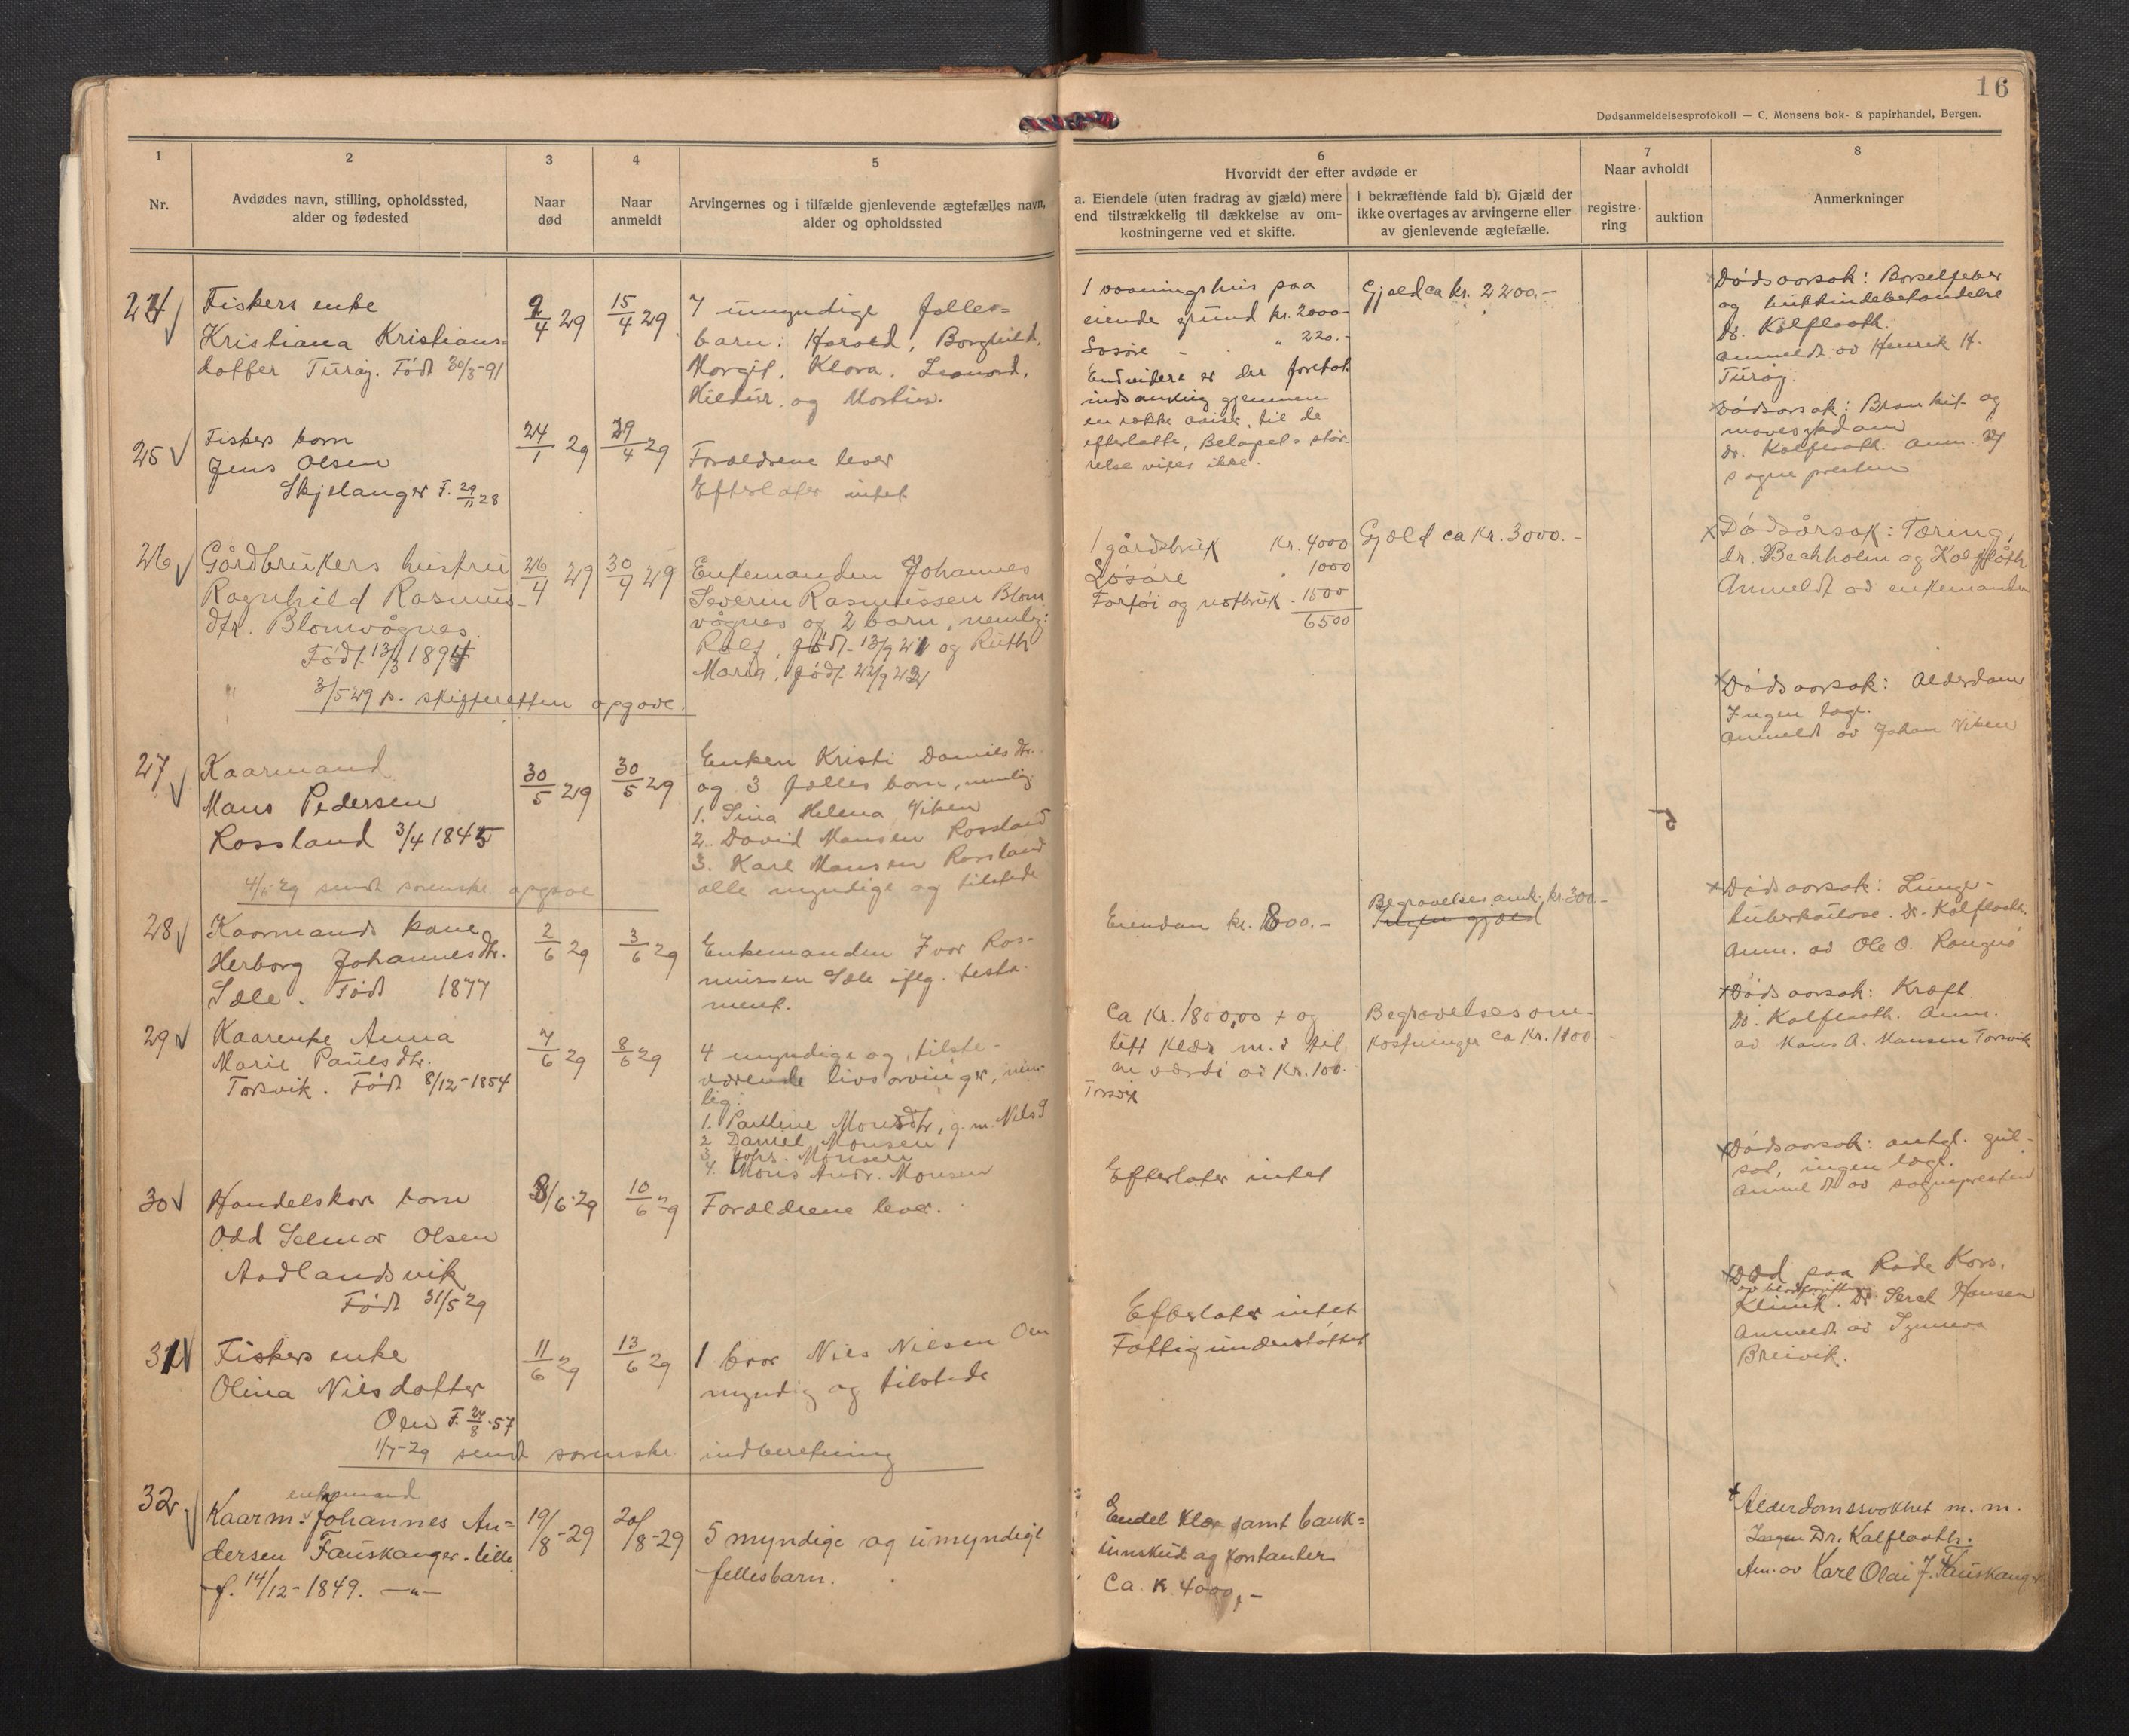 16
Dødsanmeldelsesprotokoll — C. Monsens bok- & papirhandel, Bergen.
1
2
3
4
5
6
7
8
Nr.
Avdødes navn, stilling, opholdssted,
alder og fødested
Naar
død
Naar
anmeldt
Arvingernes og i tilfælde gjenlevende ægtefælles navn,
alder og opholdssted
Hvorvidt der efter avdøde er
a. Eiendele (uten fradrag av gjæld) mere
end tilstrækkelig til dækkelse av om-
kostningerne ved et skifte.
I bekræftende fald b). Gjæld der
ikke overtages av arvingerne eller
av gjenlevende ægtefælle.
Naar avholdt
registre-
ring
auktion
Anmerkninger
24
Fiskers enke
Kristiana Kristians-
datter Turøy. Født 30/3-91
9/4 29
15/4 29
7 umyndige fælles-
barn: Harald, Borghild,
Margit, Klara, Leonard,
Hildur, og Mostein.
1 vaaningshus paa
eiende grund kr. 2000-
Løsøre - " 220.-
Endvidere er der foretat
indsamling gjennem
en række aviser, til de
efterlatte, Beløpets stør-
relse vites ikke.
Gjæld ca kr. 2200.-
Dødsaarsak: Barselfeber
og
Dr. Kalflaath.
anmeldt av Henrik H.
Turøy.
25
Fiskers barn
Jens Olsen
Skjelanger F. 29/11 28
24/1 29
29/4 29
Forældrene lever
Efterlater intet
Dødsorsak: Bronkit og
mavesykdom
Dr. Kalflaath. Anm. av
sognepresten
26
Gårdbrukers hustru
Ragnhild Rasmus-
dtr. Blomvågnes.
Født 13/3 1894
26/4 29
30/4 29
Enkemanden Johannes
Severin Rasmussen Blom
vågnes og 2 barn, nemlig:
Rolf, født 13/9 21 og Ruth
Maria, født 22/9 23
1 gårdsbruk Kr. 4000
Løsøre " 1000
Farføi og notbruk - 1500
6500
Gjæld ca Kr. 3000.-
Dødsårsak: Tæring,
dr. Bachholm og Kalflåth
Anmeldt av enkemanden
" 3/5 29 s. skifteretten opgave.
27
Kaarmand
Mans Pedersen
Rossland 3/4 1845
30/5 29
30/5 29
Enken Kristi Daniels dtr.
og 3 fælles barn, nemlig
1. Sina Helena Viken
2. David Mansen Rossland
3. Karl Mansen Rossland
alle myndige og tilstede
Dødsaarsak: Alderdom
Ingen læge.
Anmeldt av Johan Viken
4/6-29 sendt sorenskr. opgave
28
Kaarmands kone
Herborg Johannesdtr.
Sæle. Født 1877
2/6 29
3/6 29
Enkemanden Ivar Ras-
mussen Sæle iflg. testa-
ment.
Eiendom kr. 800.-
Begravelses omk. kr 300-
Ingen gjæld
Dødsaarsak: Lunge-
tuberkulose. Dr. Kalflaath.
Anm. av Ole O. Rongnø
29
Kaarenke Anna
Marie Paulsdtr.
Torsvik. Født 8/12-1854
7/6 29
8/6 29
4 myndige og tilste-
værende livsarvinger, nem-
lig:
1. Pauline Monsdtr, g. m. Nils S
Torsvik
2 Daniel Monsen
3 Johs. Monsen
4. Mons Andr. Monsen
Ca Kr. 1800,00 + og
litt klær m.v til
en værdi av Kr. 100.
Begravelsesom-
kostninger ca Kr. 1100
Dødsaarsak: Kræft
Dr. Kalflaath. Anm.
av Mans A. Mansen Torsvik
30
Handelskar barn
Odd Selmar Olsen
Aadlandsvik
Født 31/5 29
8/6-29
10/6 29
Forældrene lever.
Efterlater intet
Dødsaarsak: antgl. gul-
sot, ingen læge.
Anmeldt av sognepresten
31
Fiskers enke
Olina Nilsdatter
Oen F. 24/8-57
11/6 29
13/6 29
1 bror Nils Nilsen Oen
myndig og tilstede
Efterlater intet
Fattigunderstøttet
Død paa Røde Kors,
av blodforgiftning
Klinik. Dr. Hansen
Anmeldt av Synneva
Breivik.
1/7-29 sendt sorenskr. indberetning
32
enkemand
Kaarm. Johannes An-
dersen Fauskanger-lille
f. 14/12-1849. —"—
19/8-29
20/8-29
5 myndige og umyndige
fellesbarn.
Endel klær samt bank-
innskud og kontanter
Ca. K 4000,-
Alderdomssvakhet m. m.
Ingen Dr. Kalflaath.
Am. av Karl Olai J. Fauskanger